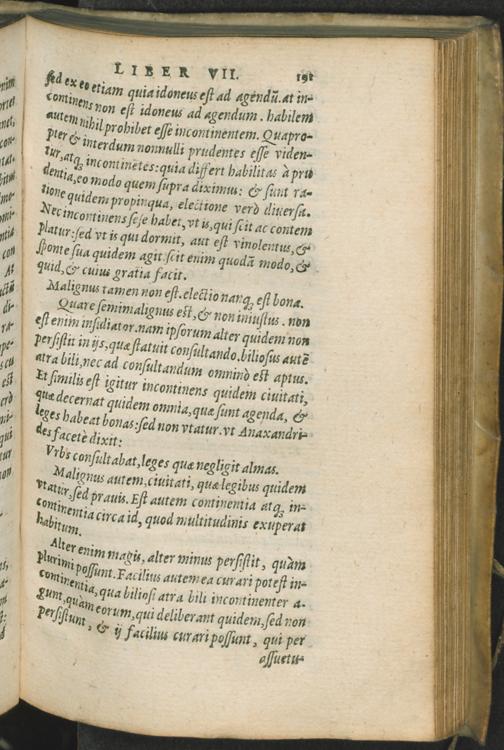 LIBER VII. 191
sed ex eo etiam quia idoneus est ad agendũ. at in-
continens non est idoneus ad agendum. habilem
autem nihil prohibet esse incontinentem. Quapro-
pter & interdum nonnulli prudentes esse viden-
tur, atq; incontinẽtes: quia differt habilitas à pru
dentia, eo modo quem supra diximus: & sunt ra-
tione quidem propinqua, electione verò diuersa.
Nec incontinens sese habet, vt is, qui scit ac contem
platur: sed vt is qui dormit, aut est vinolentus, &
sponte sua quidem agit. scit enim quodã modo, &
quid, & cuius gratia facit.
Malignus tamen non est. electio nanq; est bona.
Quare semimalignus est, & non iniustus. non
est enim insidiator. nam ipsorum alter quidem non
persistit in ijs, quæ statuit consultando. biliosus autẽ
atra bili, nec ad consultandum omnino est aptus.
Et similis est igitur incontinens quidem ciuitati,
quæ decernat quidem omnia, quæ sunt agenda, &
leges habeat bonas: sed non vtatur. vt Anaxandri-
des facetè dixit:
Vrbs consultabat, leges quæ negligit almas.
Malignus autem, ciuitati, quæ legibus quidem
vtatur, sed prauis. Est autem continentia atq; in-
continentia circa id, quod multitudinis exuperat
habitum.
Alter enim magis, alter minus persistit, quàm
plurimi possunt. Facilius autem ea curari potest in-
continentia, qua biliosi atra bili incontinenter a-
gunt, quàm eorum, qui deliberant quidem, sed non
persistunt, & ij facilius curari possunt, qui per
assuetu-